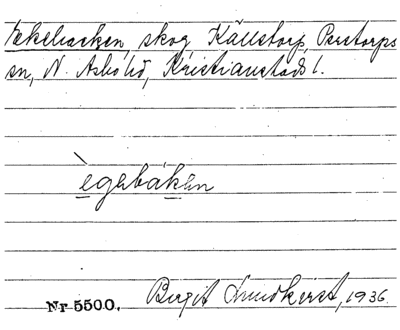 Ekebacken, skog, Källstorp, Perstorps
sn, N. Åsbo hd, Kristianstads l.
ègabákan
Nr 5500. Birgit Lundkvist, 1936.